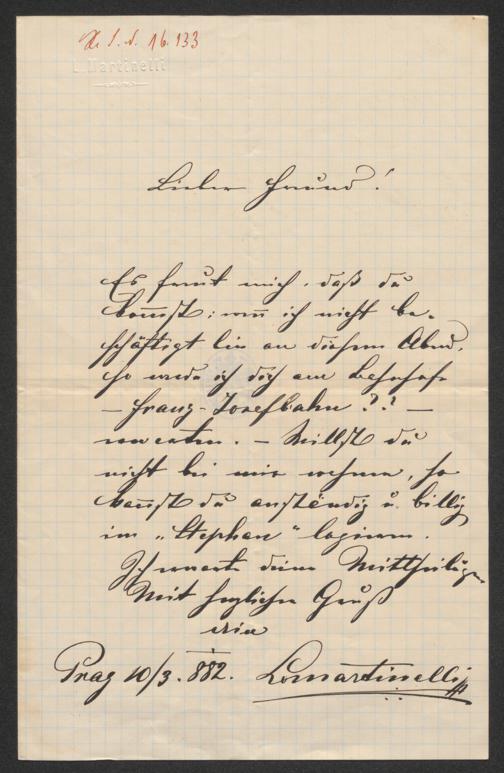 16.133
L. Martinelli
Lieber Freund!
Es freut mich, daß du
kommst; wenn ich nicht be-
schäftigt bin an diesem Abend,
so werde ich dich am Bahnhofe
— Franz-Josefbahn ?? —
erwarten. — Willst du
nicht bei mir wohnen, so
kannst du anständig u. billig
im „Stephan“ logieren.
Ich erwarte deine Mittheilungen
Mit herzlichem Gruß
dein
Prag 10/3. 882. L. Martinelli